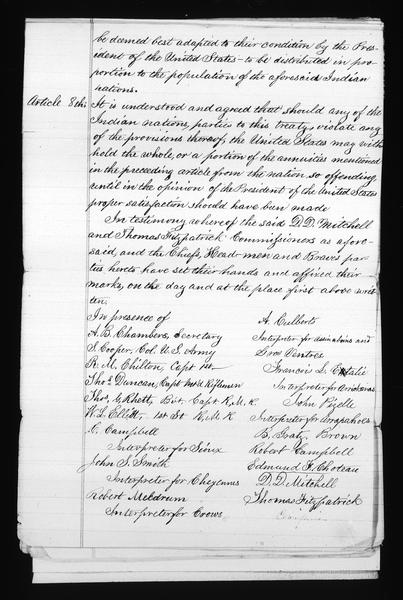 be deemed best adapted to their condition by the Pres-
ident of the United States - to be distributed in pro-
portion to the population of the aforesaid Indian
nations.
Article 8th. It is understood and agreed that should any of the
Indian nations, parties to this treaty, violate any
of the provisions thereof, the United States may with-
hold the whole, or a portion of the annuities mentioned
in the preceeding article from the nation so offending,
until in the opinion of the President of the United States
proper satisfaction should have been made
In testimony whereof the said D.D. Mitchell
and Thomas Fitzpatrick Commissioners as afore-
said, and the Chiefs, Head-men and Braves par-
ties hereto have set their hands and affixed their
marks, on the day and at the place first above writ-
ten.
In presence of
A. B. Chambers, Secretary
S. Cooper, Col. U. S. Army
R. M. Chilton, Capt 1st
Thos Duncan, Capt Mo. Riflemen
Thos. G. Rhett, Bvt. Capt R.M.R.
W. L. Elliott, 1st Lt R.M.R.
C. Campbell
Interpreter for Sioux
John S. Smith
Interpreter for Cheyennes
Robert Meldrum
Interpreter for Crows
A. Culbertson
Interpreter for Assinaboins and
Gros Ventres
Francois L. Etalie
Interpreter for Arickaras
John Pizelle
Interpreter for Arrapahoes
B. Gratz Brown
Robert Campbell
Edmund F. Choteau
D. D. Mitchell
Thomas Fitzpatrick